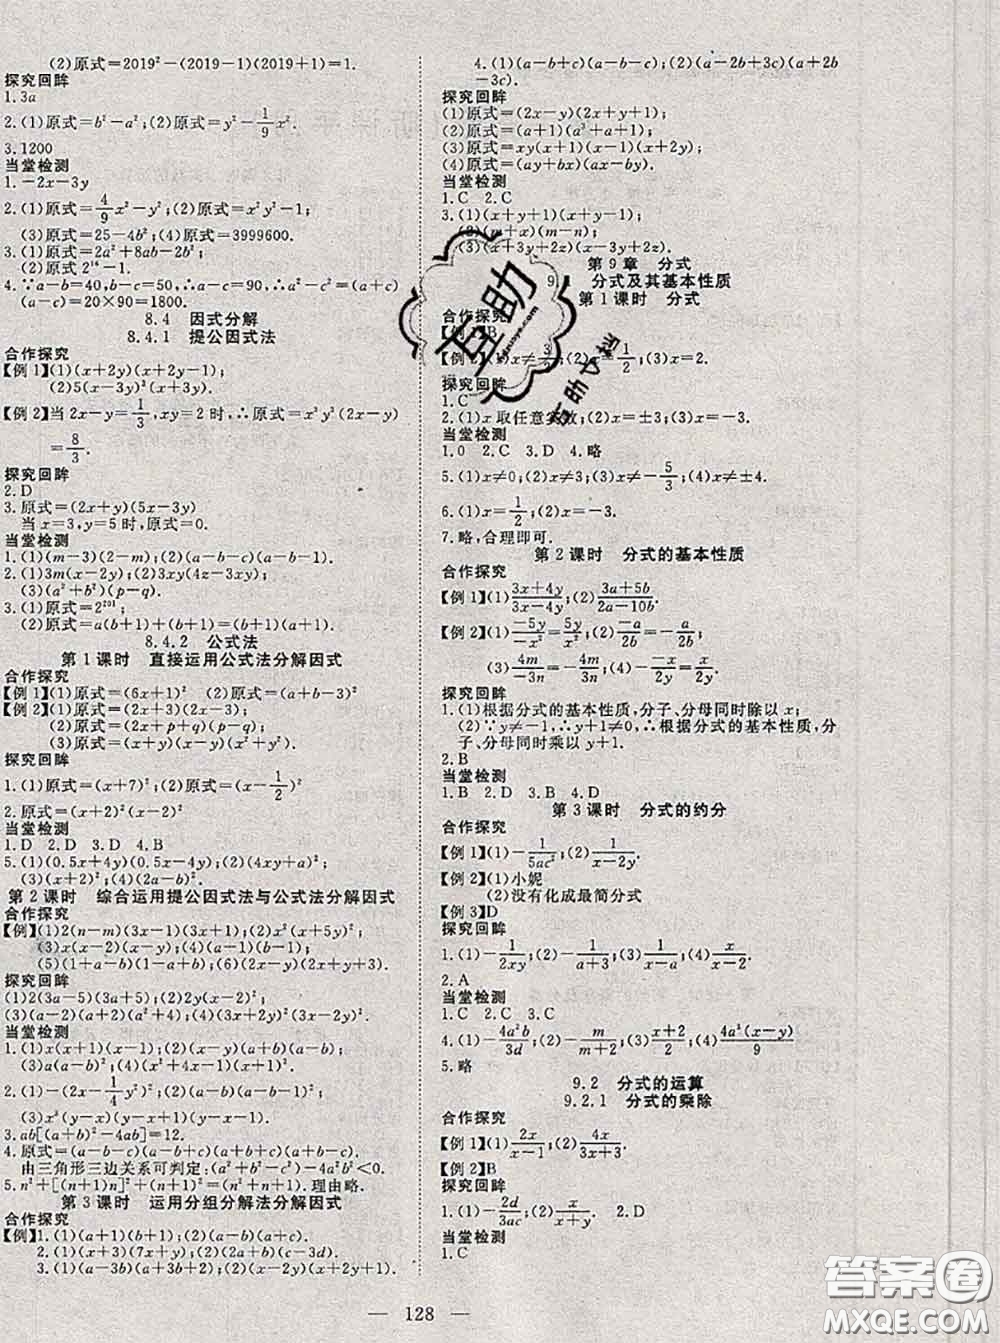 (2)原式=2019²-(2019-1)(2019+1)=1.
探究回眸
1.3a
2.(1)原式=b²-a²;(2)原式=y²-1/9x².
3.1200
当堂检测
1.-2x-3y
2.(1)原式=4/9x²-y²;(2)原式=x²y²-1;
(3)原式=25-4b²;(4)原式=3999600.
3.(1)原式=2a²+8ab-2b²;
(2)原式=2¹⁶-1.
4.∵a-b=40,b-c=50,∴a-c=90,∴a²-c²=(a+c)
(a-c)=20×90=1800.
8.4 因式分解
8.4.1 提公因式法
合作探究
【例1】(1)(x+2y)(x+2y-1);
(2)5(x-3y)²(x+3y);
【例2】当2x-y=1/3,xy=2时,∴原式=x³y³(2x-y)
=8/3.
探究回眸
2.D
3.原式=(2x+y)(5x-3y)
当x=3,y=5时,原式=0.
当堂检测
1.(1)(m-3)(2-m);(2)(a-b-c)(a-b-1).
2.(1)3m(x-2y);(2)3xy(4z-3xy);
(3)(a²+b²)(p-q).
3.(1)原式=2²⁰¹;
(2)原式=a(b+1)+(b+1)=(b+1)(a+1).
8.4.2 公式法
第1课时 直接运用公式法分解因式
合作探究
【例1】(1)原式=(6x+1)² (2)原式=(a+b-3)²
【例2】(1)原式=(2x+3)(2x-3);
(2)原式=(x+p+q)(x-p-q);
(3)原式=(x+y)(x-y)(x²+y²).
探究回眸
1.(1)原式=(x+7)²;(2)原式=(x-1/2)²
2.原式=(x+2)²(x-2)²
当堂检测
1.D 2.D 3.D 4.B
5.(1)(0.5x+4y)(0.5x-4y);(2)(4y+a)²;
(3)(a+b-c)²;(4)(2a-b)².
第2课时 综合运用提公因式法与公式法分解因式
合作探究
【例】(1)2(n-m)(3x-1)(3x+1);(2)x²(x+5y)²;
(3)x(x-2y)(x-y);(4)(a-b)(b-1)²;
(5)(1+a-b)(1-a+b);(6)(2x-2y+3)².
探究回眸
(1)2(3a-5)(3a+5);(2)2y(x-2)²;
(3)(a-2)(a+2)(a²+4);(4)(2x-2y+1)²
当堂检测
1.(1)x(x+1)(x-1);(2)(x-2y)(x-2y+1)
(3)a(a-b)²;(4)(x+1)²(x-1)².
2.(1)-(2x-1/4y)²;(2)-4y²(x-1)²;
(3)x³(y-x)(y-x-1);(4)(x-y)²(x+y)²
3.ab[(a+b)²-4ab]=12.
4.原式=(a+b+c)(a+b-c)(a-b+c)(a-b-c).
由三角形三边关系可判定:(a²+b²-c²)²-4a²b²<0.
5.n²+[(n+1)n]²+(n+1)²=(n²+n+1)².理由略.
第3课时 运用分组分解法分解因式
合作探究
【例】1.(1)(a+1)(b+1);(2)(ay+b)(a+c).
2.(1)(x+3)(7x+y);(2)(a-b)(3m+1).
3.(1)(a-b-1)(a-b+2);(2)(x-2y+1)(x+2y).
4.(1)(a-b+c)(a-b-c);(2)(a-2b+3c)(a+2b
-3c).
探究回眸
(1)原式=(2x-y)(2x+y+1);
(2)原式=(a+1)(a³+1)=(a+1)²(a²-a+1);
(3)原式=xy(x+1)(x-1)(x+y);
(4)原式=(ay+bx)(ax-by).
当堂检测
1.C 2.C
3.(1)(x+y+1)(x+y-1);
(2)(m+x)(m-n);
(3)(x+3y+2z)(x-3y+2z).
第9章 分式
9 分式及其基本性质
第1课时 分式
合作探究
【例1】B
【例2】(1)x≠3/2;(2)x=1/2;(3)x=2.
探究回眸
1.C
2.(1)x取任意实数;(2)x=±3;(3)x=-3.
当堂检测
1.0 2.C 3.D 4.略
5.(1)x≠0;(2)x≠3;(3)x≠-5/3;(4)x≠±4.
6.(1)x=1/2;(2)x=-3.
7.略,合理即可.
第2课时 分式的基本性质
合作探究
【例1】(1)3x+4y/3x-4y;(2)3a+5b/2a-10b.
【例2】(1)-5y/-x²=5y/x²;(2)-a/2b=-a/2b;
(3)4m/-3n=-4m/3n;(4)-x/2y=-x/2y.
探究回眸
1.(1)根据分式的基本性质,分子、分母同时除以x;
(2)∵y≠-1,∴y+1≠0,∴根据分式的基本性质,分
子、分母同时乘以y+1.
2.B
当堂检测
1.B 2.D 3.B 4.D
第3课时 分式的约分
合作探究
【例1】(1)-1/5ac²;(2)1/x-2y.
【例2】(1)小妮
(2)没有化成最简分式
【例3】D
探究回眸
1.(1)-1/2xy;(2)-1/a+3;(3)1/x-a;(4)-x/x-y.
2.A
当堂检测
1.C 2.C 3.C
4.(1)-4a²b/3d;(2)-m/m+2;(3)x+2/x-2;(4)4a²(x-y)/9
5.略
9.2 分式的运算
9.2.1 分式的乘除
合作探究
【例1】(1)2x/x-1;(2)4x/3x+3.
【例2】B
探究回眸
1.(1)-2d/3ac;(2)x/x+y. 2.D
当堂检测
1.C
128
互助
答案圈
MXQE.COM